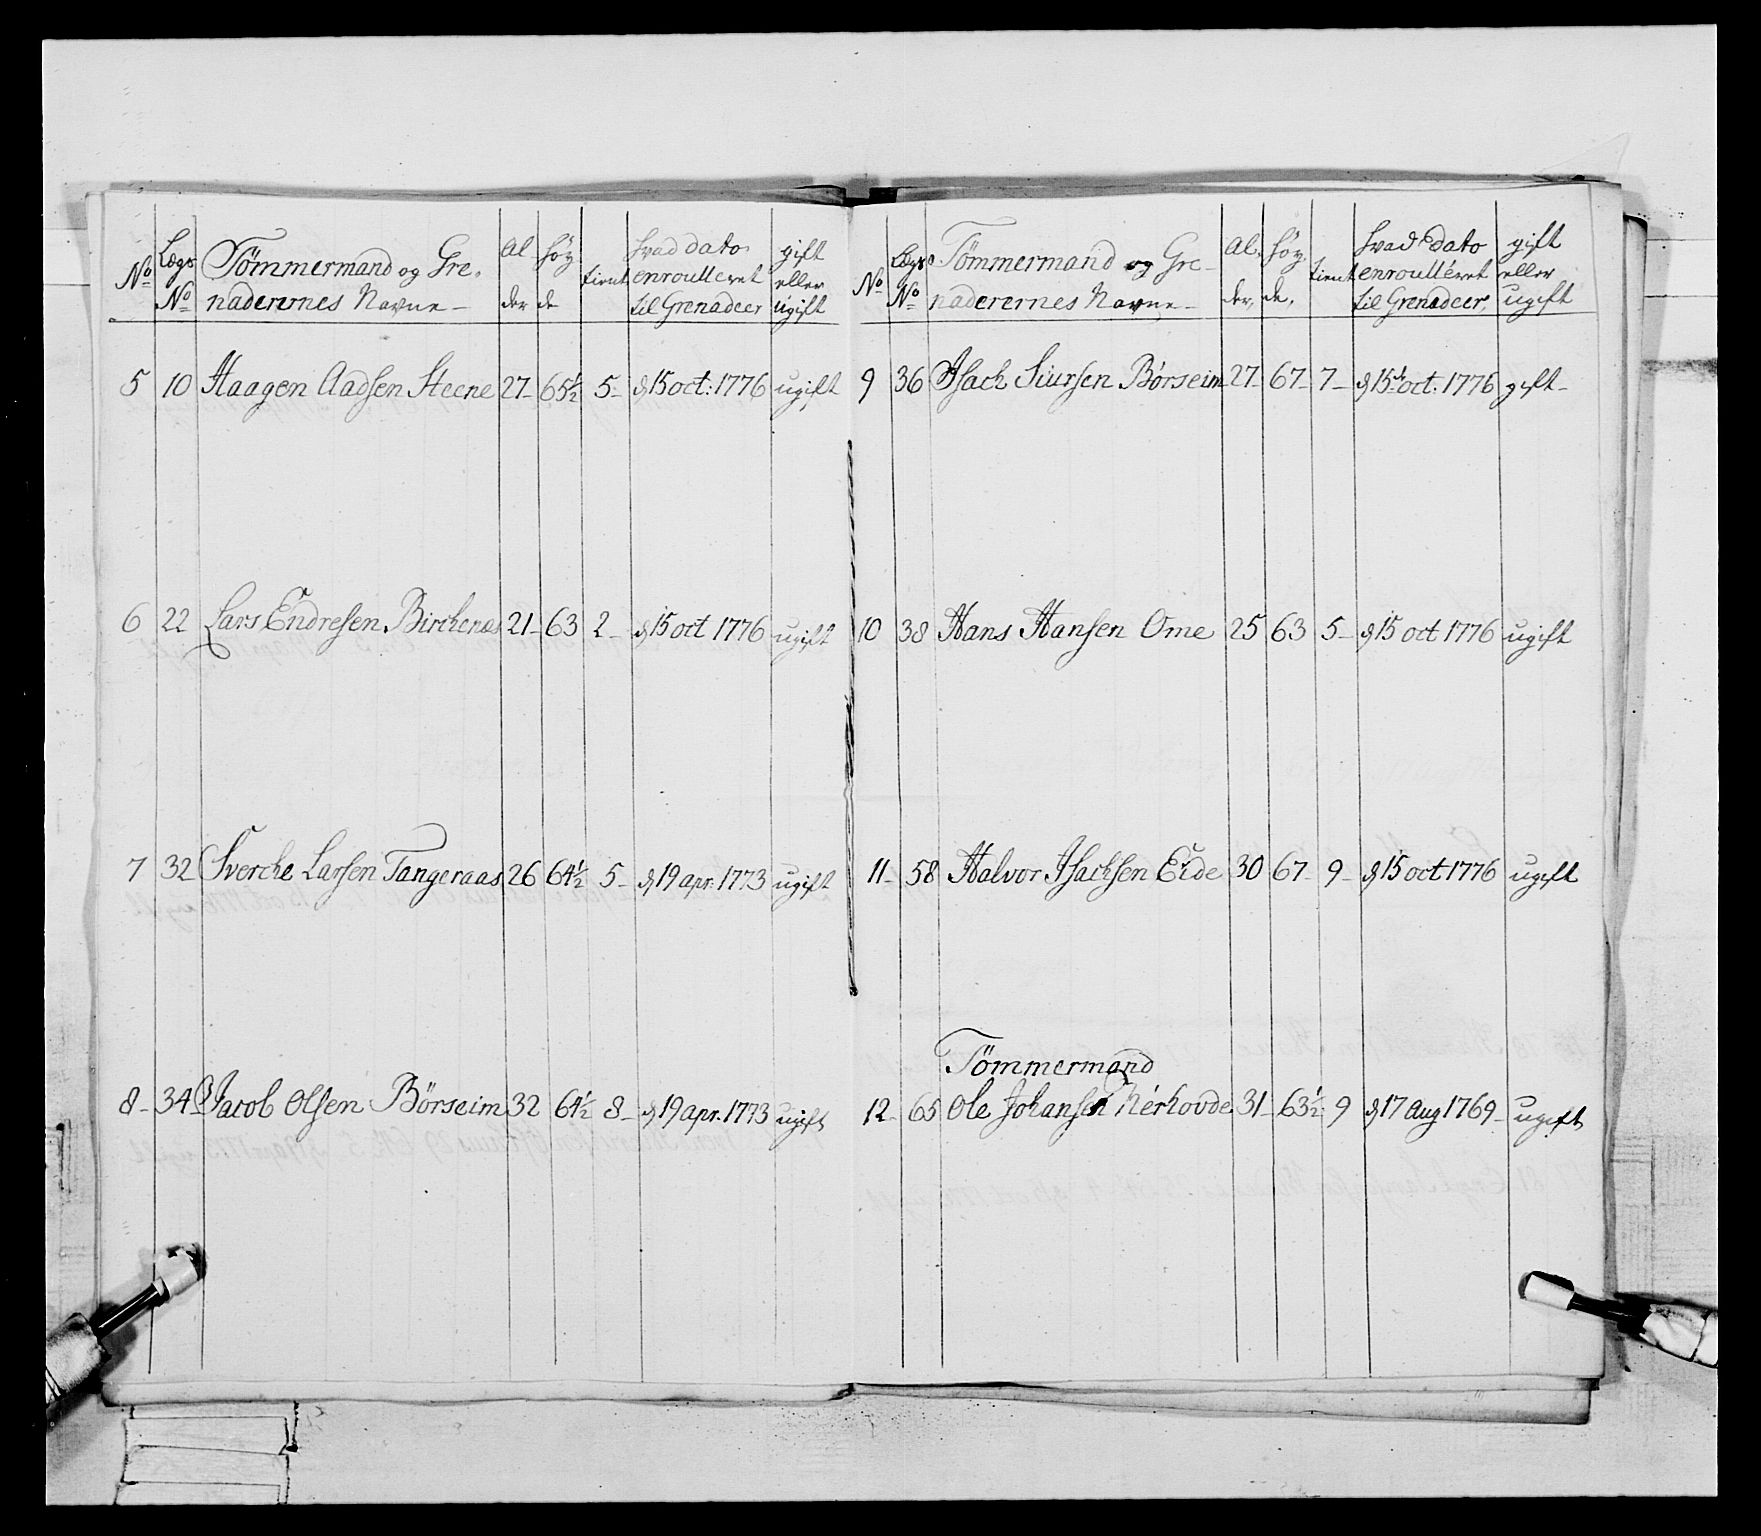 No Lægs No Tømmermand og Gre-naderernes Navne - Al der höy de tient hvad dato enroulleret til Grenadeer gift eller ugift
5 10 Haagen Aadsen Steene 27- 65½ 5- d 15 oct: 1776 ugift
6 22 Lars Endresen Birckenæs 21- 63 2- d 15 oct 1776 ugift
7 32 Sverche Larsen Tangeraas 26 64½ 5- d 19 apr: 1773 ugift
8- 34 Jacob Olsen Börseim 32 64½ 8- d 19 apr. 1773 ugift
No Lægs No Tömmermand og Gre-naderernes Navne - Al. der, höy. de, tient hvad dato enroulléret til Grenadeer, gift eller ugift
9 36 Isach Siursen Börseim 27- 67- 7- d 15 oct: 1776 gift-
10 38 Hans Hansen Ome 25 63 5- d 15 oct 1776 ugift
11- 58 Halvor Isachsen Eide 30 67- 9- d 15 oct 1776 ugift
Tömmermand
12- 65 Ole Johansen Nérhovde 31- 63½ 9 d 17 Aug 1769- ugift